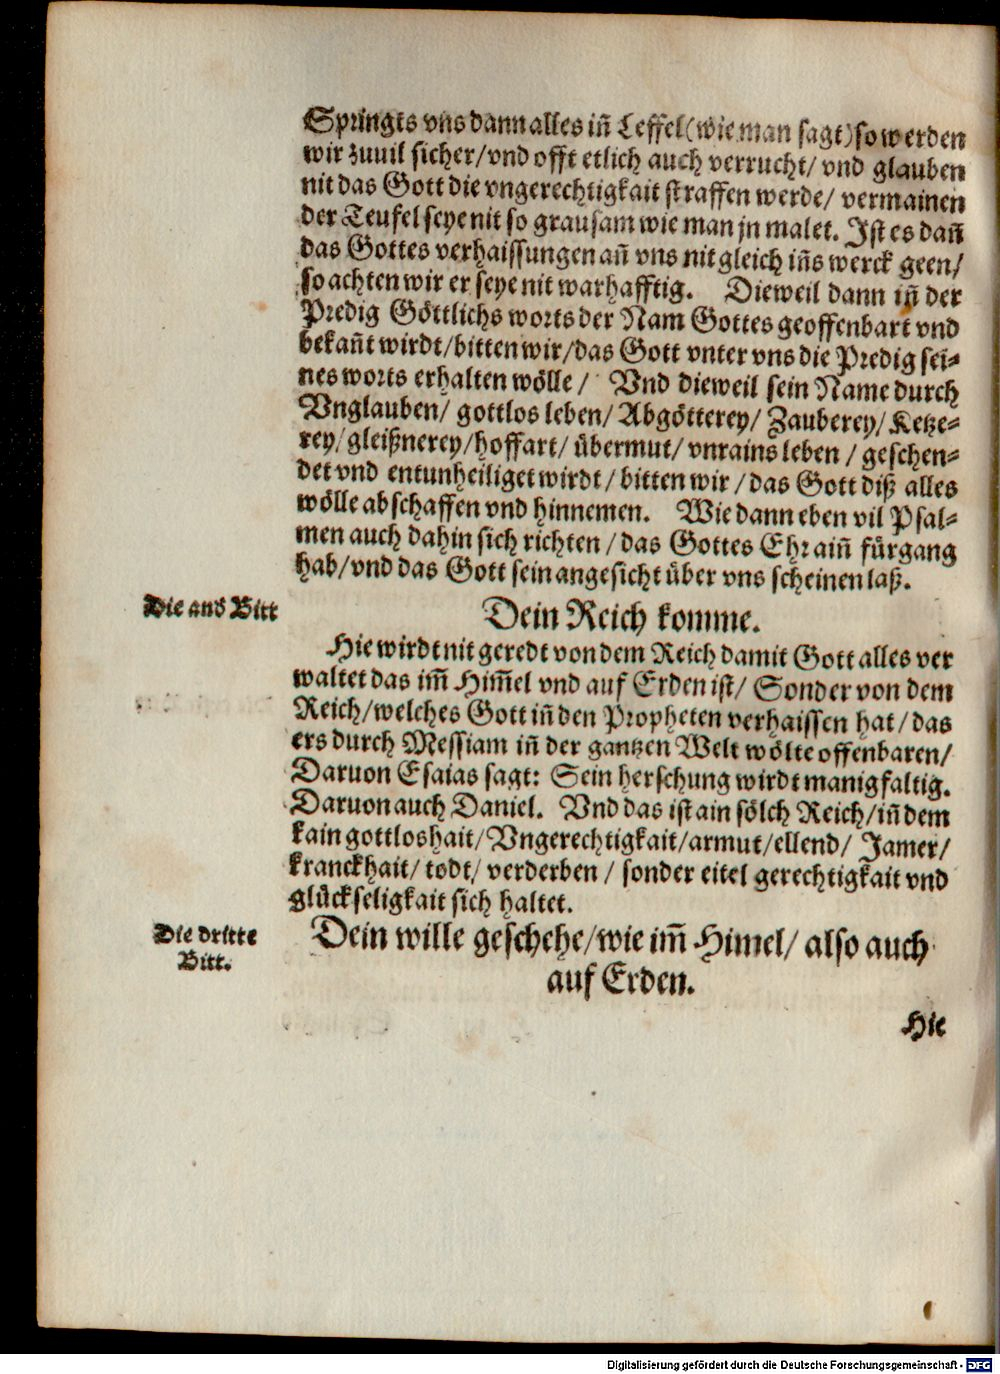 Springts vns dann alles iñ Leffel (wie man sagt) so werden
wir zuuil sicher / vnd offt etlich auch verrucht / vnd glauben
nit das Gott die vngerechtigkait straffen werde / vermainen
der Teufel seye nit so grausam wie man jn malet. Ist es dañ
das Gottes verhaissungen añ vns nit gleich iñs werck geen /
so achten wir er seye nit warhafftig. Dieweil dann iñ der
Predig Göttlichs worts der Nam Gottes geoffenbart vnd
bekañt wirdt / bitten wir / das Gott vnter vns die Predig sei-
nes worts erhalten wölle / Vnd dieweil sein Name durch
Vnglauben / gottlos leben / Abgötterey / Zauberey / Ketze-
rey / gleißnerey / hoffart / übermut / vnrains leben / geschen-
det vnd entunheiliget wirdt / bitten wir / das Gott diß alles
wölle abschaffen vnd hinnemen. Wie dann eben vil Psal-
men auch dahin sich richten / das Gottes Ehr aiñ fürgang
hab / vnd das Gott sein angesicht über vns scheinen laß.
Die and Bitt
Dein Reich komme.
Hie wirdt nit geredt von dem Reich damit Gott alles ver
waltet das im̃ Him̃el vnd auf Erden ist / Sonder von dem
Reich / welches Gott iñ den Propheten verhaissen hat / das
ers durch Messiam iñ der gantzen Welt wölte offenbaren /
Daruon Esaias sagt: Sein herschung wirdt manigfaltig.
Daruon auch Daniel. Vnd das ist ain sölch Reich / iñ dem
kain gottloshait / Vngerechtigkait / armut / ellend / Jamer /
kranckhait / todt / verderben / sonder eitel gerechtigkait vnd
glückseligkait sich haltet.
Die dritte
Bitt.
Dein wille geschehe / wie im̃ Himel / also auch
auf Erden.
Hie
Digitalisierung gefördert durch die Deutsche Forschungsgemeinschaft - DFG